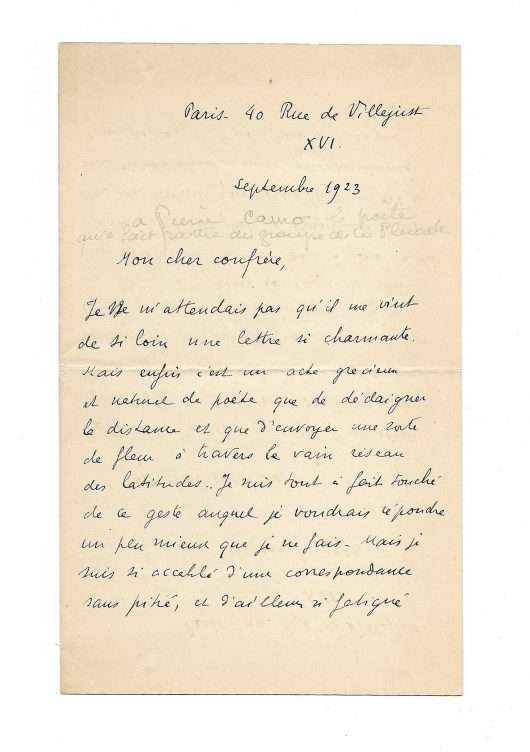 Paris - 40 Rue de Villejust
XVI.
Septembre 1923
a Pierre Camo le poète
ayant fait partie du groupe de la Pleiade
Mon cher confrère,
Je ne m'attendais pas qu'il me vint
de si loin une lettre si charmante.
Mais enfin c'est un acte gracieux
et naturel de poète que de dédaigner
la distance et que d'envoyer une sorte
de fleur à travers le vain réseau
des latitudes.. Je suis tout à fait touché
de ce geste auquel je voudrais répondre
un peu mieux que je ne fais - Mais je
suis si accablé d'une correspondance
sans pitié, et d'ailleurs si fatigué